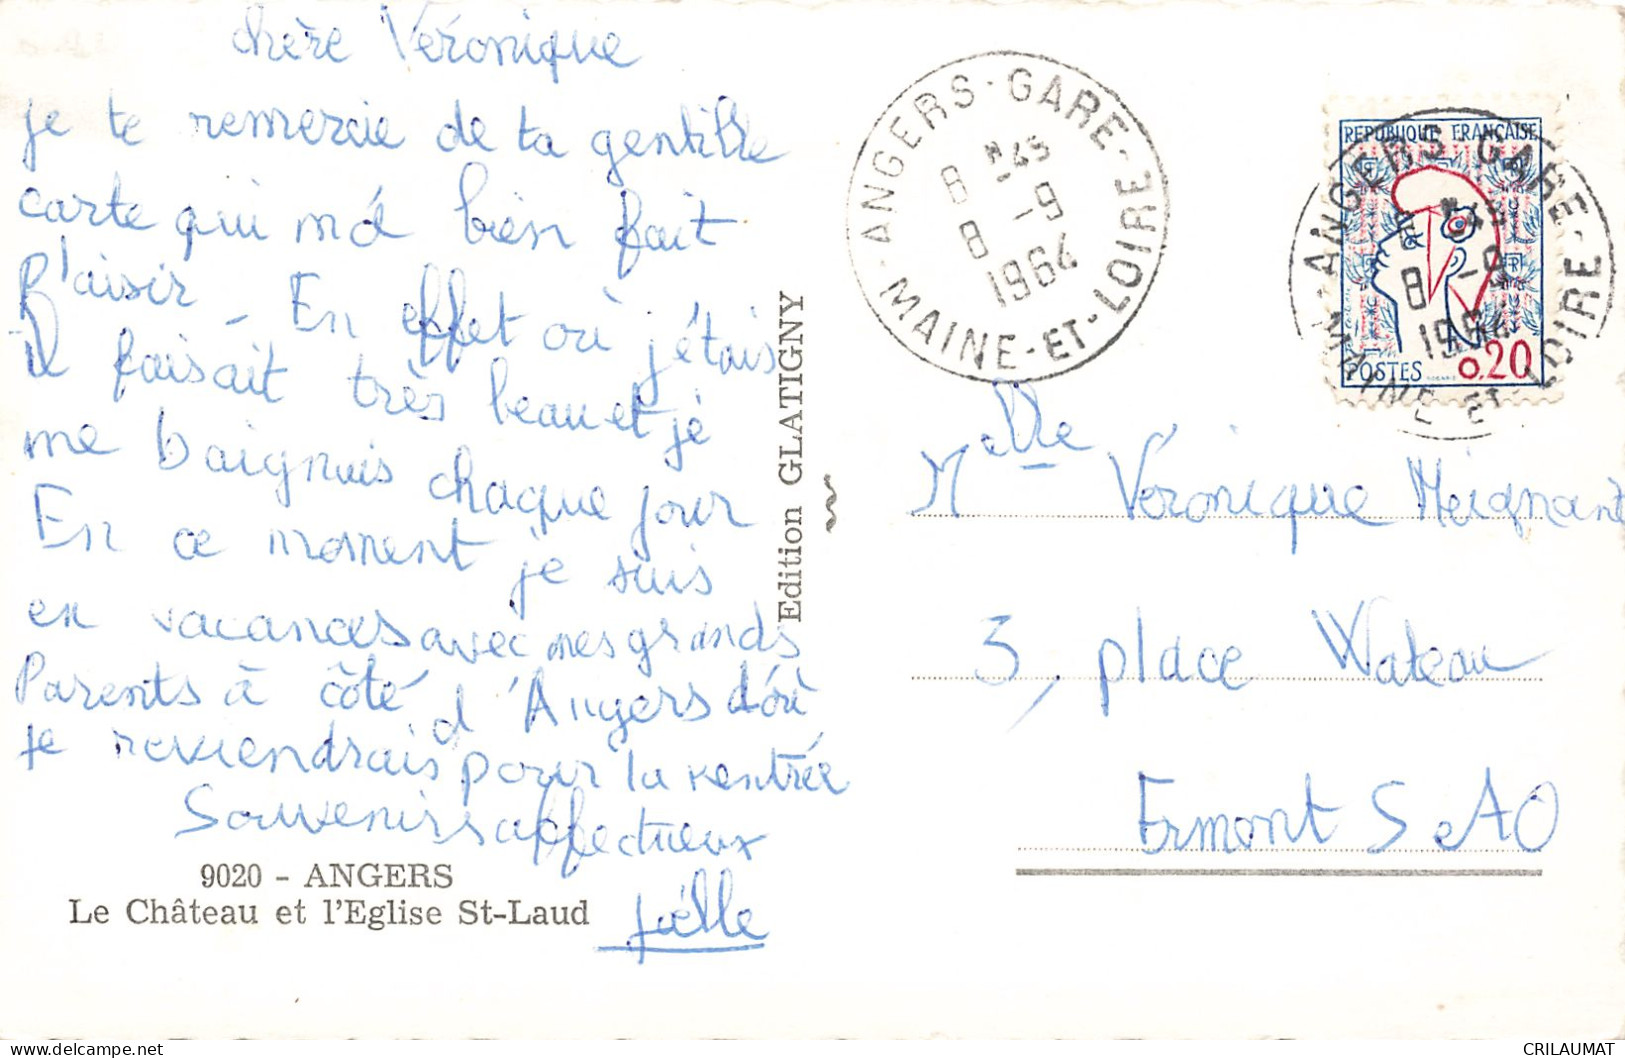 chère Véronique
je te remercie de ta gentille
carte qui m'a bien fait
plaisir. En effet où j'étais
il faisait très beau et je
me baignais chaque jour
En ce moment je suis
en vacances avec mes grands
Parents à côté d'Angers d'où
je reviendrais pour la rentrée
Souvenirs affectueux
Joëlle
9020 - ANGERS
Le Château et l'Eglise St-Laud
Edition GLATIGNY
ANGERS-GARE
8 H45
8 -9
1964
MAINE-ET-LOIRE
REPUBLIQUE FRANÇAISE
POSTES 0,20
ANGERS GARE
8 H45
8 -9
1964
MAINE ET LOIRE
Melle Véronique Meignant
3, place Wateau
Ermont S et O
CRILAUMAT